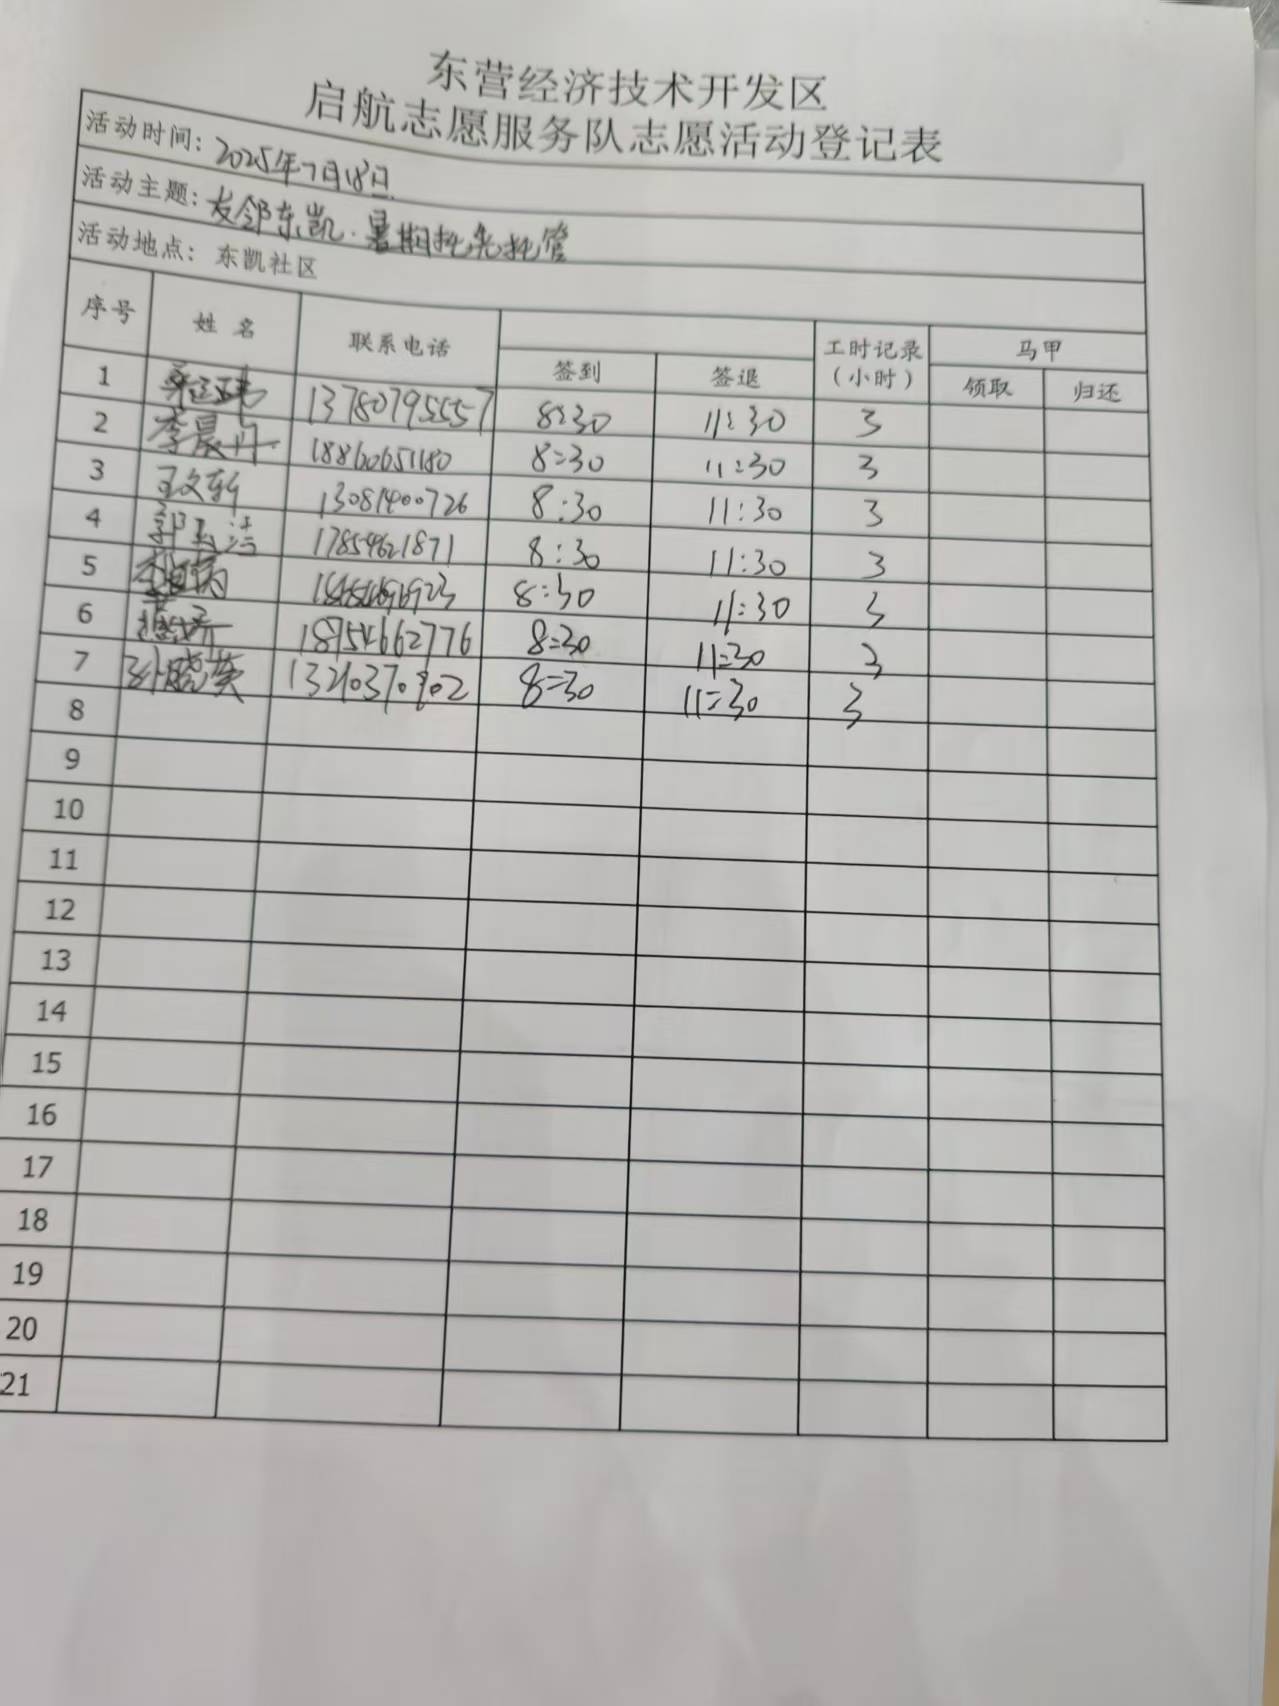 东营经济技术开发区
启航志愿服务队志愿活动登记表
活动时间：2025年7月18日
活动主题：友邻东凯·暑期托管
活动地点：东凯社区
序号 姓名 联系电话 签到 签退 工时记录（小时） 马甲 领取 归还
1 13780795557 8:30 11:30 3
2 李晨丹 18860651180 8:30 11:30 3
3 王文轩 13081400726 8:30 11:30 3
4 郭玉洁 17854621871 8:30 11:30 3
5 8:30 11:30 3
6 18954662776 8:30 11:30 3
7 孙晓英 8:30 11:30 3
8
9
10
11
12
13
14
15
16
17
18
19
20
21